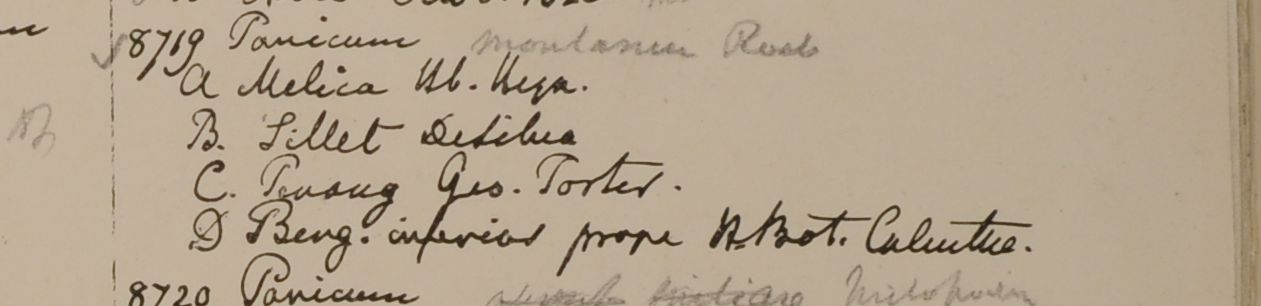 8719 Panicum montanum Roxb
A Melica Hb. Heyn.
B. Sillet DeSilva
C. Penang Geo. Porter.
D Beng. inferior prope H. Bot. Calcutta.
8720 Panicum